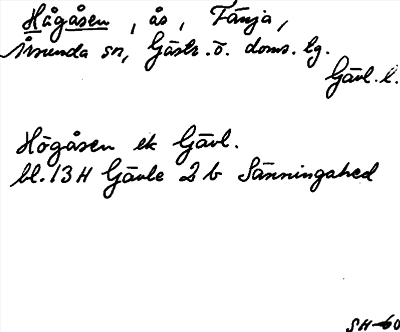 Hågåsen, ås, Fänja,
Årsunda sn, Gästr. ö. doms. lg.
Gävl. l.
Högåsen ek Gävl.
bl. 13 H Gävle 2 b Sänningahed
SH-60